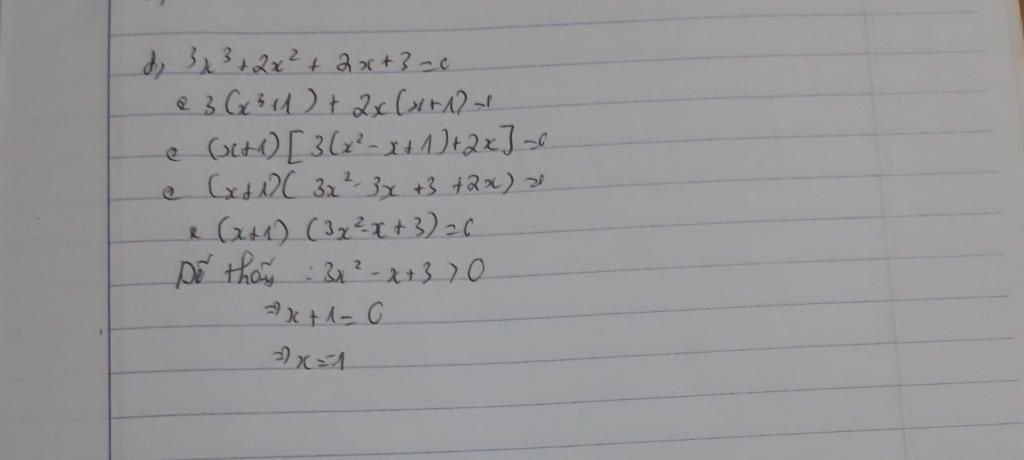 d, 3x³+2x²+ 2x+3=0
⇔ 3(x³+1)+ 2x(x+1)=0
⇔ (x+1)[3(x²-x+1)+2x]=0
⇔ (x+1)(3x²-3x+3+2x)=0
⇔ (x+1)(3x²-x+3)=0
Dễ thấy : 3x²-x+3>0
⇒x+1=0
⇒x=-1